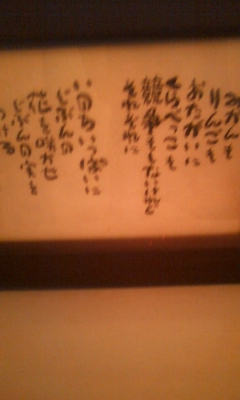 みかんも
りんごも
おたがいに
くらべっこも
競争もしないけど
それぞれに
いのちいっぱいに
じぶんの
花を咲かせ
じぶんの実を
つける